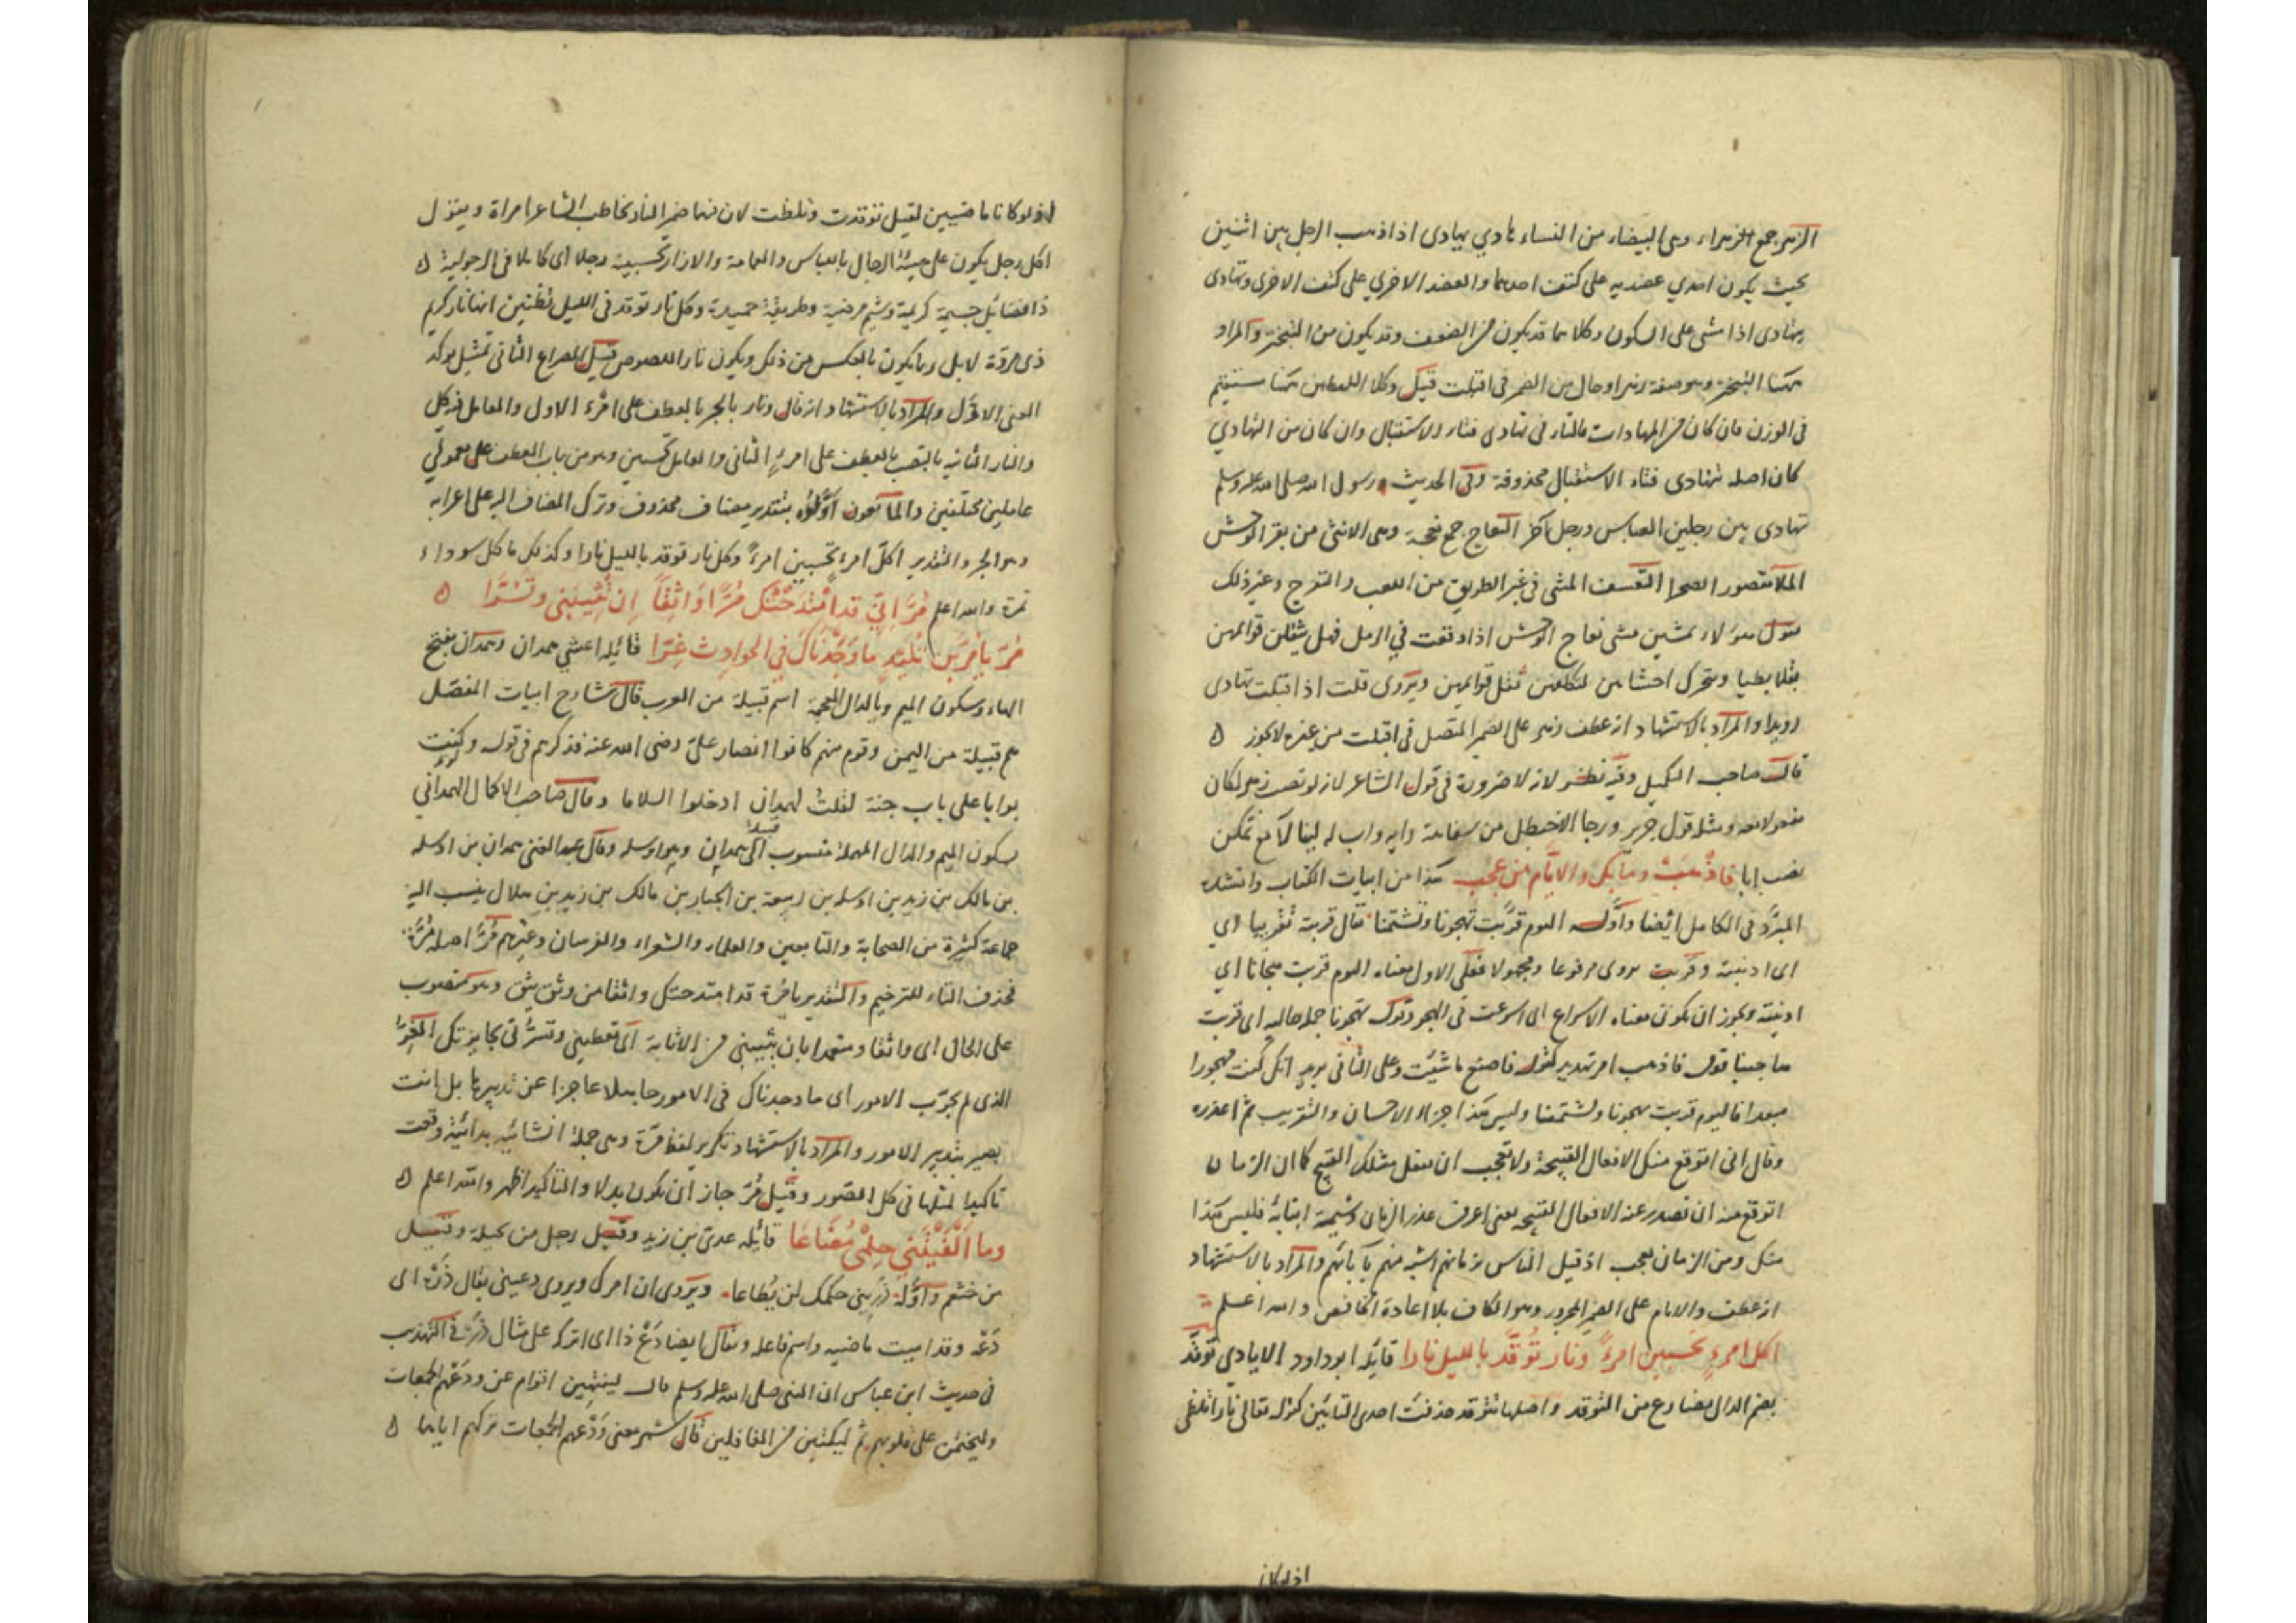 الزهر جمع الزهراء وهى البيضاء من النساء هادي يهادى اذا ذهب الرجل بين اثنين
بحيث يكون احدي عضديه على كتف احدهما والعضد الاخري على كتف الاخرى وتهادى
يتهادى اذا مشى على السكون وكلاهما قد يكون من الضعف وقد يكون من التبختر والمراد
ههنا التبختر وهو صفة زهر او حال من الضمير فى اقبلت قيل وكلا اللفظين ههنا مستقيم
فى الوزن فان كان من المهادات فالتاء فى تهادى فتاء الاستقبال وان كان من التهادي
كان اصله تتهادى فتاء الاستقبال محذوفة وفى الحديث رسول الله صلى الله عليه وسلم
تهادى بين رجلين العباس ورجل آخر النعاج جمع نعجة وهى الانثى من بقر الوحش
الملا مقصور الصحرا التعسف المشى فى غير الطريق من اللعب والتعرج وغير ذلك
يقول هؤلاء يمشين مشى نعاج الوحش اذا وقعت في الرمل فهل ينقلن قوائمهن
نقلا بطيا ويتحرك احشاهن لتكلفهن نقل قوائمهن ويروى قلت اذ اقبلت تهادى
رويدا والمراد بالاستشهاد انه عطف زهر على الضمير المتصل فى اقبلت من غيره لايجوز
قال صاحب التكميل وفيه نظر لانه لا ضرورة فى قول الشاعر لانه لو نصب زهر لكان
مفعولا معه ومثله قول جرير ورجا الاخيطل من سفاهة رايه واب له لينالا مع تمكن
نصب ابا فاذهب وما بك والايام من عجب هذا من ابيات الكتاب وانشده
المبرّد فى الكامل ايضا واوله اليوم قرّبت تهجونا وتشتمنا يقال قربته تقريبا اي
اى ادنيته وقربت يروى مرفوعا ومجهولا فعلى الاول معناه اليوم قربت هجانا اي
ادنيته ويجوز ان يكون معناه الاسراع اى اسرعت فى الهجو وقوله تهجونا جملة حالية اى قربت
هاجينا قوله فاذهب امر تهديد كقوله فاصنع ماشئت وعلى الثانى يريد انك كنت مهجورا
مبعدا فاليوم قربت تهجونا وتشتمنا وليس هكذا جزاء الاحسان والتقريب ثم اعذره
وقال انى اتوقع منك الافعال القبيحة ولا تعجب ان يفعل مثلك القبيح كما ان الزمان
اتوقع منه ان تصدر عنه الافعال القبيحه يعنى اعرف غدر الزمان وشيمة ابنائه فليس هكذا
منك ومن الزمان بعجب اذ قيل الناس بزمانهم اشبه منهم بآبائهم والمراد بالاستشهاد
انه عطف والايام على الضمير المجرور وهو الكاف بلا اعادة الخافض والله اعلم
اكل امرء تحسبين امرءً ونار توقد بالليل نارا قائله ابو داود الايادي توقد
بضم الدال مضارع من التوقد واصلها تتوقد حذفت احدى التائين كقوله تعالى نارا تلظى
اذ لو كانا
اذ لو كانا ماضيين لقيل توقدت وتلظت لان فيهما ضمير النار يخاطب الشاعر امراة ويقول
اكل رجل يكون على هيئة الرجال باللباس والعمامة والازار تحسبينه رجلا اى كاملا فى الرجولية
ذا فضائل جسيمة كريمة وشيم مرضية وطريقة حميدة وكل نار توقد فى الليل تظنين انها نار كريم
ذى مروة لا بل ربما يكون بالعكس من ذلك ويكون نار اللصوص قيل المصراع الثانى تمثيل يؤكد
المعنى الاول والمراد بالاستشهاد انه قال ونار بالجر بالعطف على امرء الاول والعامل فيه كل
والنار الثانيه بالنصب بالعطف على امرء الثانى والعامل تحسبين وهو من باب العطف على معمولى
عاملين مختلفين والمانعون اوّلوه بتقدير مضاف محذوف وترك المضاف اليه على اعرابه
وهو الجر والتقدير اكل امرء تحسبين امرءً وكل نار توقد بالليل نارا وكذلك ما كل سوداء
تمرة والله اعلم مُرَّ اِنّي قد امتدحتك مُرّا واثقا ان تثيبنى وتسرّا
مُرّ يا مُرّ بن تليد ما وجدناك في الحوادث غِرّا قائله اعشي همدان وهمدان بفتح
الهاء وسكون الميم وبالدال المعجمة اسم قبيلة من العرب قال شارح ابيات المفصّل
هم قبيلة من اليمن وقوم منهم كانوا انصار علىّ رضى الله عنه فذكرهم فى قوله وكنت
بوابا على باب جنة لقلت لهمدان ادخلوا السلاما وقال صاحب الاكمال الهمدانى
بسكون الميم والدال المهملة منسوب الى همدان قبيلة وهو اوسله وقال عبد الغنى همدان بن اوسله
بن مالك بن زيد بن اوسله بن ربيعة بن الجبار بن مالك بن زيد بن هلال ينسب اليه
جماعة كثيرة من الصحابة والتابعين والعلماء والشعراء والفرسان وغيرهم مُرّ اصله مُرَّة
فحذف التاء للترخيم والتقدير يامرة قد امتدحتك واثقا من وثق يثق وهو منصوب
على الحال اى واثقا ومعتمدا بان تثيبنى من الاثابة اى تعطينى وتسرّنى بجايزتك الغِرّ
الذى لم يجرّب الامور اى ما وجدناك فى الامور جاهلا عاجزا عن تدبيرها بل انت
بصير بتدبير الامور والمراد بالاستشهاد تكرير لفظ مرّة وهى جملة انشائيه بدائيّة وقعت
تاكيدا لمثلها فى كل الصّور وقيل مُرّ جاز ان يكون بدلا والتاكيد اظهر والله اعلم
وما اَلْفَيْتَنِي حِلْمِي مُضَاعَا قائله عدىّ بن زيد وقيل رجل من بجيلة وقيل
من خثعم واوّله ذريني حكمك لن يُطاعا ويروى ان امرك ويروى دعينى يقال ذَرْه اى
دَعْه وقد اميت ماضيه واسم فاعله ويقال ايضا دَعْ ذا اى اتركه على مثال ذَرْه فى التهذيب
فى حديث ابن عباس ان النبى صلى الله عليه وسلم قال لينتهين اقوام عن ودعهم الجمعات
وليختمن على قلوبهم ثم ليكتبن من الغافلين قال شمر معنى ودعهم الجمعات تركهم اياها